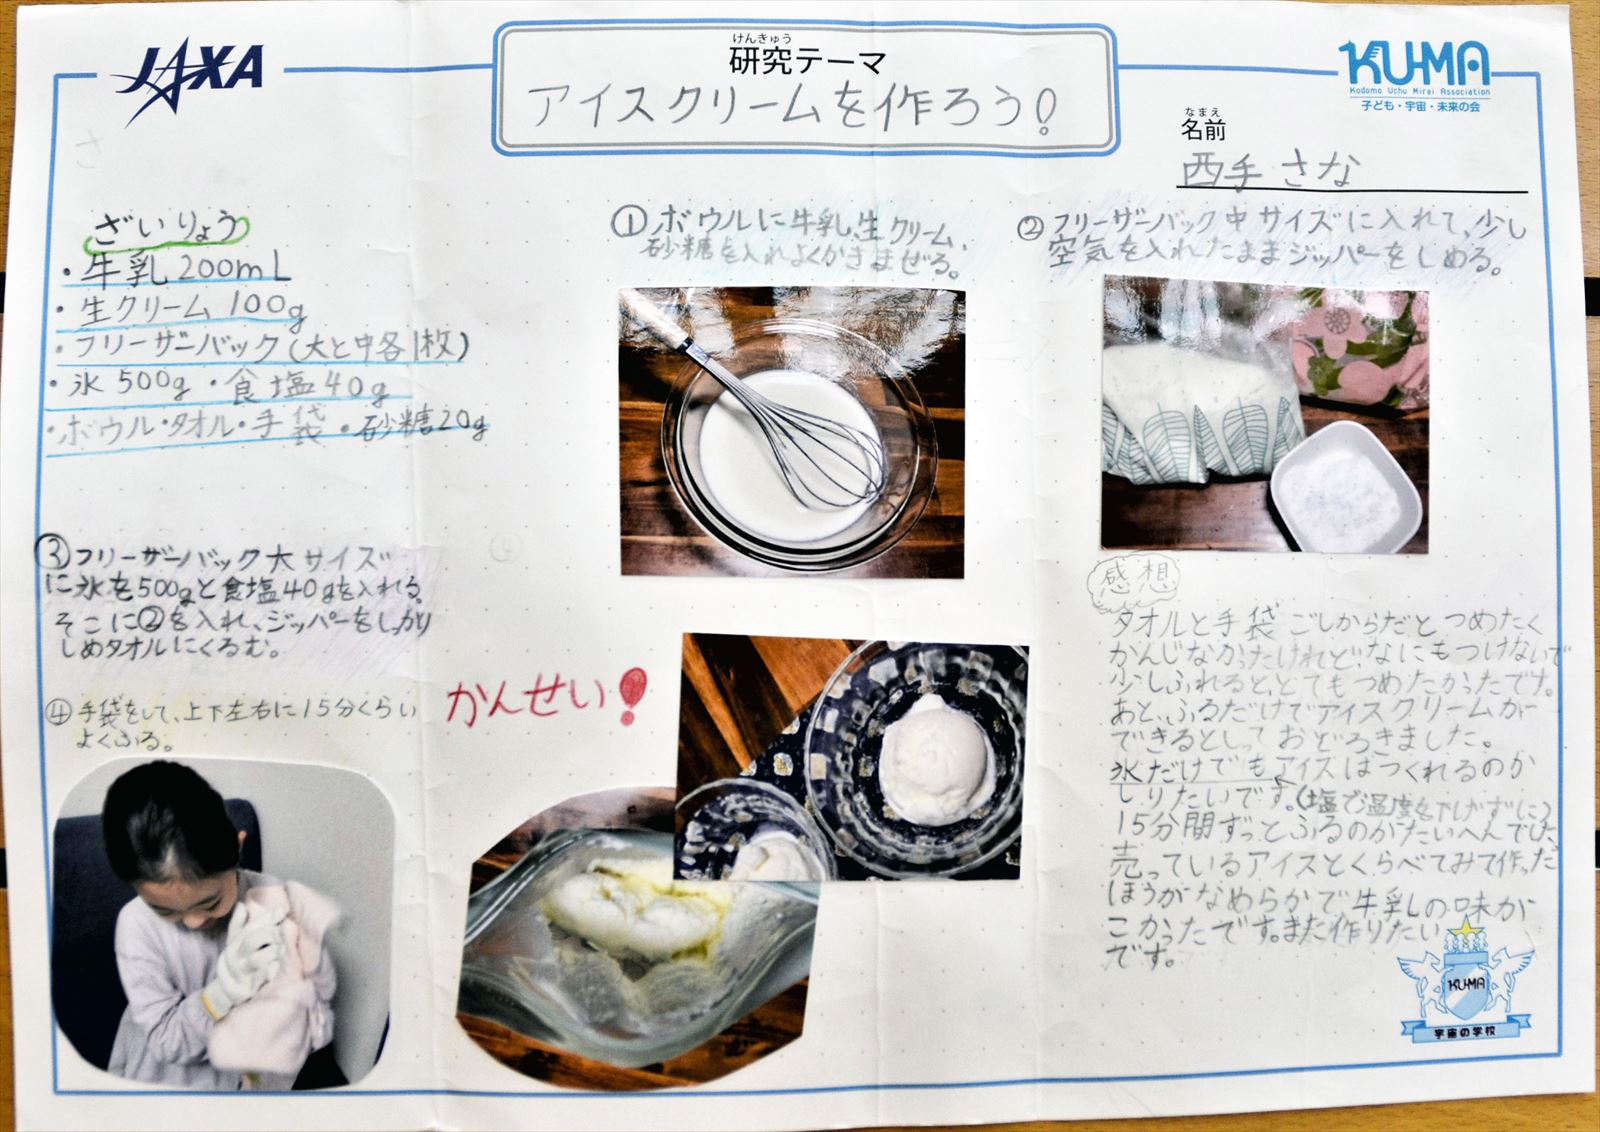 JAXA
けんきゅう
研究テーマ
アイスクリームを作ろう!
KU-MA
Kodomo Uchu Mirai Association
子ども・宇宙・未来の会
なまえ
名前
西手 さな
さ
ざいりょう
・牛乳200mL
・生クリーム 100g
・フリーザーバック(大と中各1枚)
・氷 500g ・食塩40g
・ボウル・タオル・手袋・砂糖20g
①ボウルに牛乳、生クリーム、
砂糖を入れよくかきまぜる。
②フリーザーバック中サイズに入れて、少し
空気を入れたままジッパーをしめる。
③フリーザーバック大サイズ
に氷を500gと食塩40gを入れる。
そこに②を入れ、ジッパーをしっかり
しめタオルにくるむ。
④手袋をして、上下左右に15分くらい
よくふる。
かんせい!
感想
タオルと手袋ごしからだとつめたく
かんじなかったけれど、なにもつけないで
少しふれると、とてもつめたかったです。
あと、ふるだけでアイスクリームが
できるとしっておどろきました。
氷だけでもアイスはつくれるのか
しりたいです。(塩で温度を下げずに)
15分間ずっとふるのがたいへんでした
売っているアイスとくらべてみて作った
ほうがなめらかで牛乳の味が
こかったです。また作りたい
です。
KU-MA
宇宙の学校